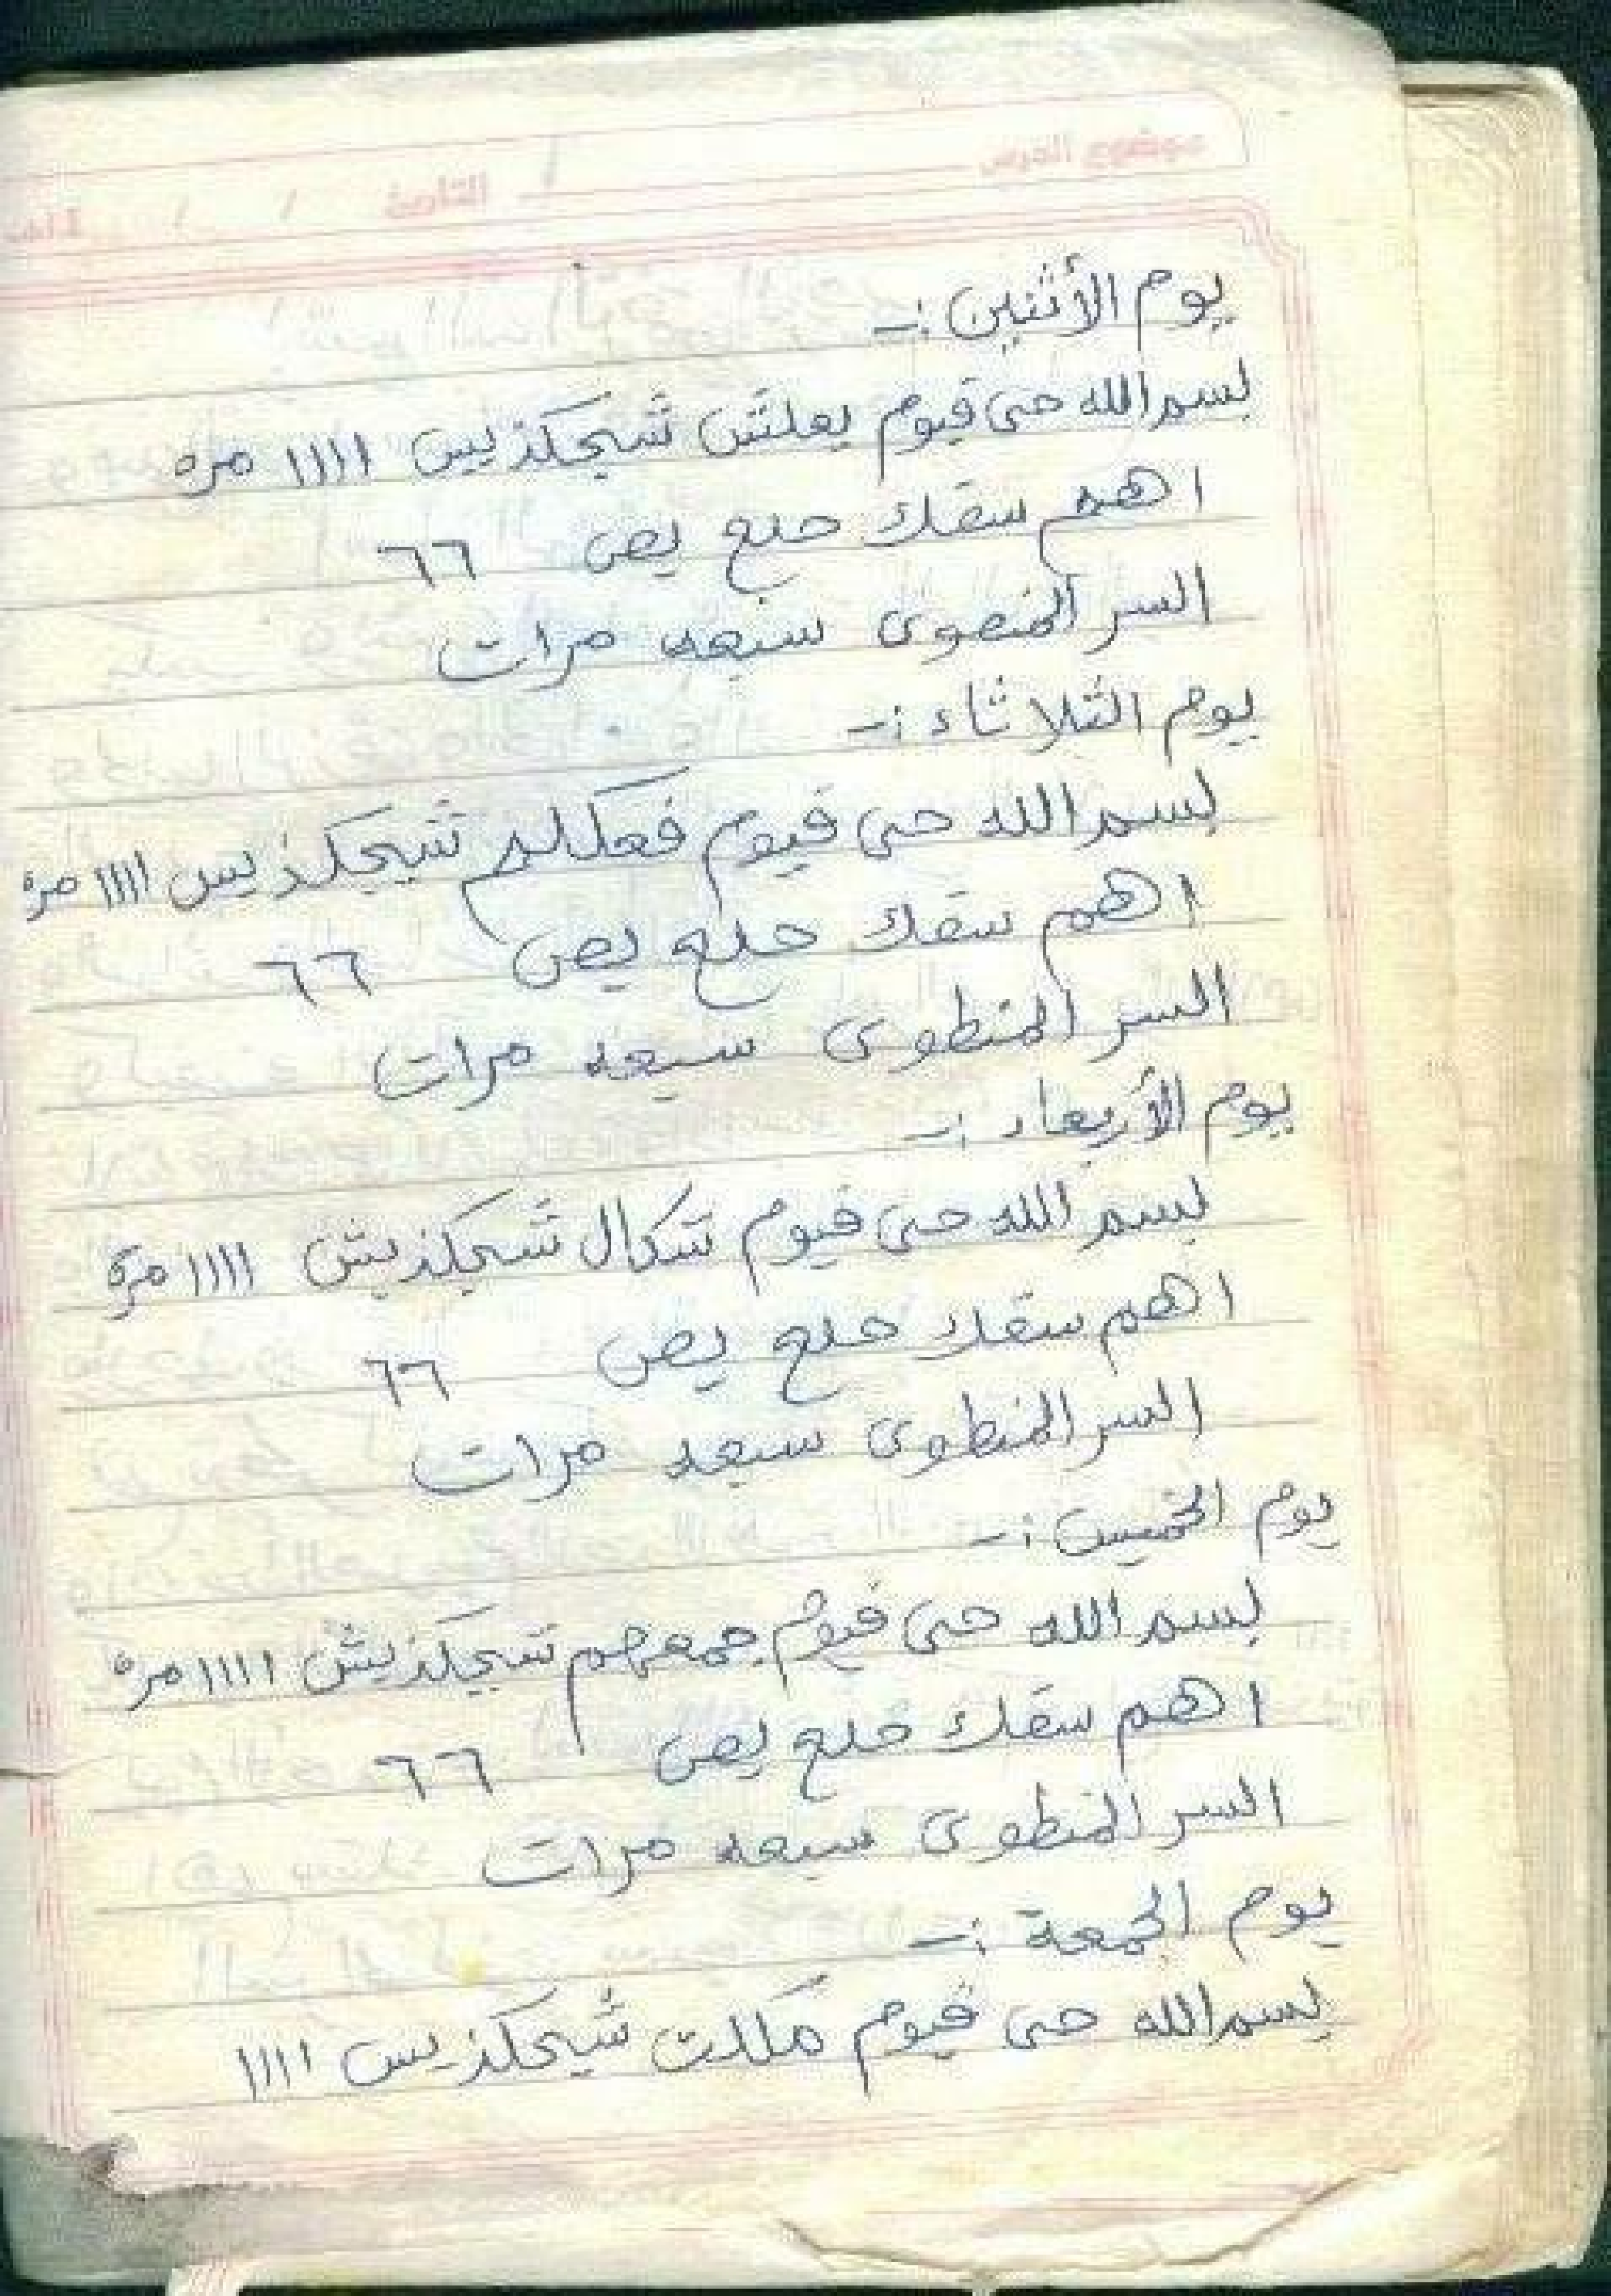 يوم الأثنين :-
بسم الله حى قيوم يعلش شجكذيس ١١١١ مره
اهم سقك حلع يص ٦٦
السر المنصوى سبعه مرات
يوم الثلاثاء :-
بسم الله حى قيوم فعكلم شيجكذيس ١١١١ مره
اهم سقك حلع يص ٦٦
السر المنطوى سبعه مرات
يوم الأربعاء :-
بسم الله حى قيوم شكال شجكذيش ١١١١ مرة
اهم سقك حلع يص ٦٦
السر المنطوى سبعه مرات
يوم الخميس :-
بسم الله حى قيوم جمعهم شيجكذيش ١١١١ مره
اهم سقك حلع يص ٦٦
السر المنطوى سبعه مرات
يوم الجمعة :-
بسم الله حى قيوم مكلت شيجكذيس ١١١١